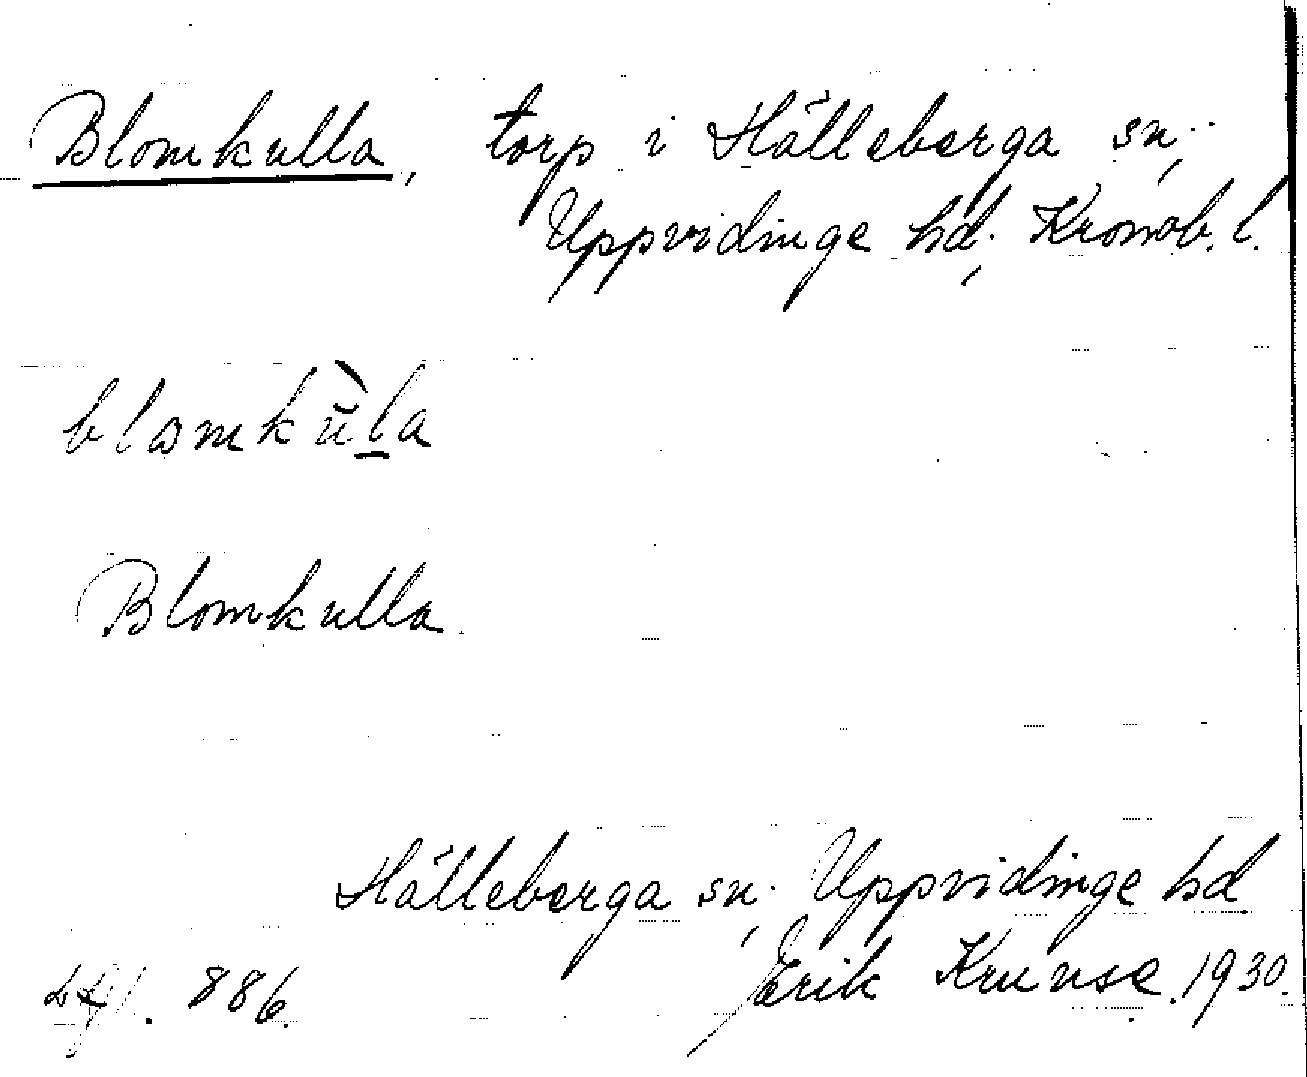 Blomkulla, torp i Hälleberga sn,
Uppvidinge hd, Kronob. l.
blomkùla
Blomkulla
Hälleberga sn, Uppvidinge hd
886. Erik Kruuse 1930.